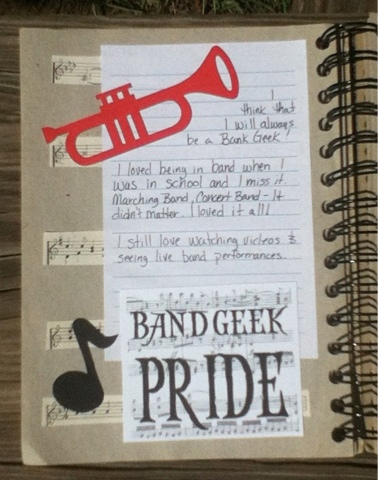 I
think that
I will always
be a Band Geek!
I loved being in band when I
was in school and I miss it.
Marching Band, Concert Band - It
didn't matter. I loved it all!
I still love watching videos &
seeing live band performances.
BAND GEEK
PRIDE